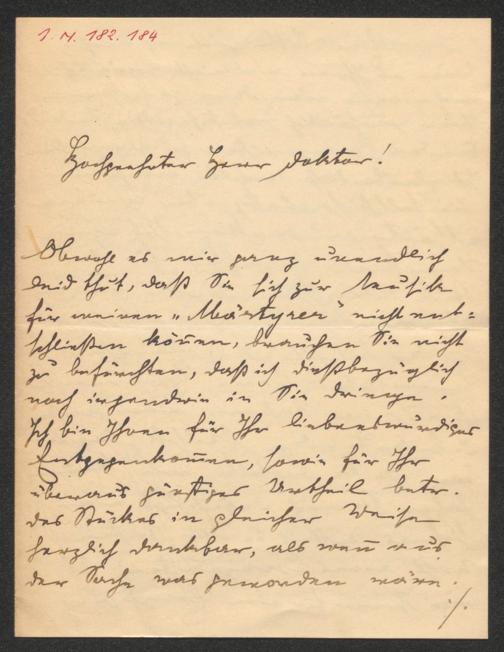 I. N. 182.184
Hochgeehrter Herr Doktor!
Obwohl es mir ganz unendlich
leid thut, daß Sie sich zur Musik
für meinen „Märtyrer" nicht ent=
schließen können, brauchen Sie nicht
zu befürchten, daß ich dießbezüglich
noch irgendwie in Sie dringe.
Ich bin Ihnen für Ihr liebenswürdiges
Entgegenkom̄en, sowie für Ihr
überaus günstiges Urtheil betr.
des Stückes in gleicher Weise
herzlich dankbar, als wen̄ aus
der Sache was geworden wäre.
./.